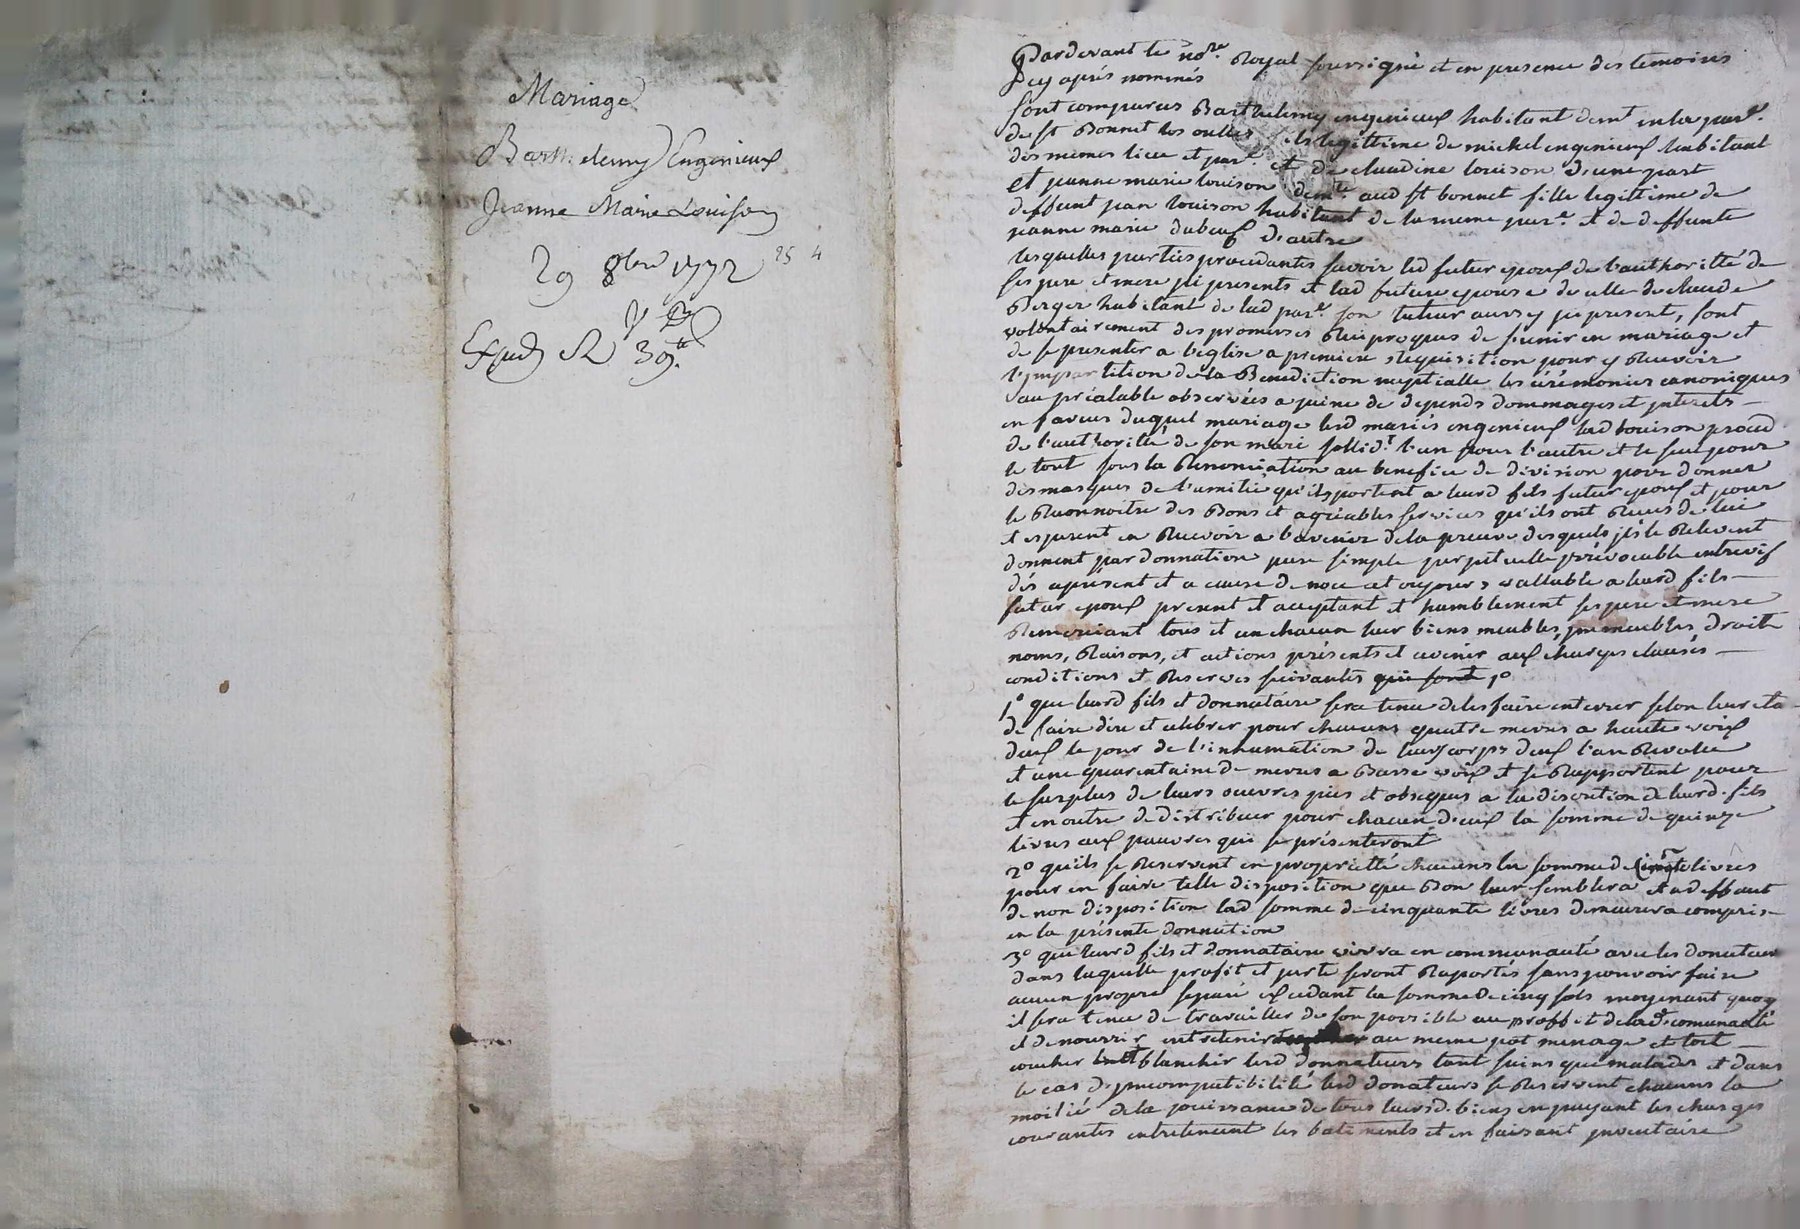 Mariage
Barthelemy Engenieux
Jeanne Marie Louison
29 8bre 1772
25 4
Exped
39
Pardevant le no.re Royal soussigné et en presence des temoins
cy aprés nommés
sont comparus Barthelemy engenieux habitant demt en la par.e
de st Bonnet les oulles fils legittime de michel engenieux habitant
des memes lieu et par.e et de claudine louison d'une part
et jeanne marie louison demte aud st bonnet fille legittime de
deffunt jean louison habitant de la meme par.e et de deffunte
jeanne marie dubeuf d'autre
lesquelles parties procedantes savoir led futur epoux de l'authoritté de
ses pere et mere jci presents et lad future epouse de celle de claude
Berger habitant de lad par.e son tuteur aussy jci present, sont
volontairement des promesses Reciproques de s'unir en mariage et
de se presenter a l'eglise a premiere Requisition pour y Recevoir
l'jmpartition de la Benediction nuptialle les cérémonies canoniques
au préalable observées a peine de depends dommages et jnterets
en faveur duquel mariage lesd mariés engenieux lad louison proced
de l'authorité de son mari sollid.t l'un pour l'autre et le seul pour
le tout sous la Renonciation au benefice de division pour donner
des marques de l'amitié qu'ils portent a leurd fils futur epoux et pour
le Reconnoitre des Bons et agréables services qu'ils ont Recus de lui
et esperent en Recevoir a l'avenir de la preuve desquels jls le Relevent
donnent par donnation pure simple perpetuelle jrrévocable entrevif
dés apresent et a cause de noce at oujours vallable a leurd fils
futur epoux present et acceptant et humblement ses pere et mere
Remerciant tous et un chacun leur biens meubles, jmmeubles, droits
noms, Raisons, et actions présents et avenir aux charges clauses
conditions et Reserves suivantes qui sont 1°
1° que leurd fils et donnataire sera tenu de les faire enterrer selon leur eta
de faire dire et celebrer pour chacuns quatre messes a haute voix
deux le jour de l'inhumation de leurs corps deux l'an Revolu
et une quarentaine de messes a Basse voix et se Rapportent pour
le surplus de leurs oeuvres pies et obseques a la discretion de leurd. fils
et en outre de distribuer pour chacun d'eux la somme de quinze
livres aux pauvres qui se présenteront
2° qu'ils se Reservent en proprietté chacuns la somme de livres
pour en faire telle disposition que Bon leur semblera et a deffaut
de non disposition lad somme de cinquante livres demeurera compris
en la présente donnation
3° que leurd fils et donnataire vivra en communauté avec les donateurs
dans laquelle profit et perte seront Raportés sans pouvoir faire
aucun propre separé excedant la somme de cinq sols moyenant quoy
il sera tenu de travailler de son possible au proffit de lad. comunauté
et de nourrir entretenir au meme pot menage et toit
coucher blanchir lesd donnateurs tant sains que malades et dans
le cas d'jncompatibilité lesd donateurs se Reservent chacuns la
moitié de la jouissance de tous leursd. biens en payant les charges
courantes entretenant les batiments et en faisant jnventaire